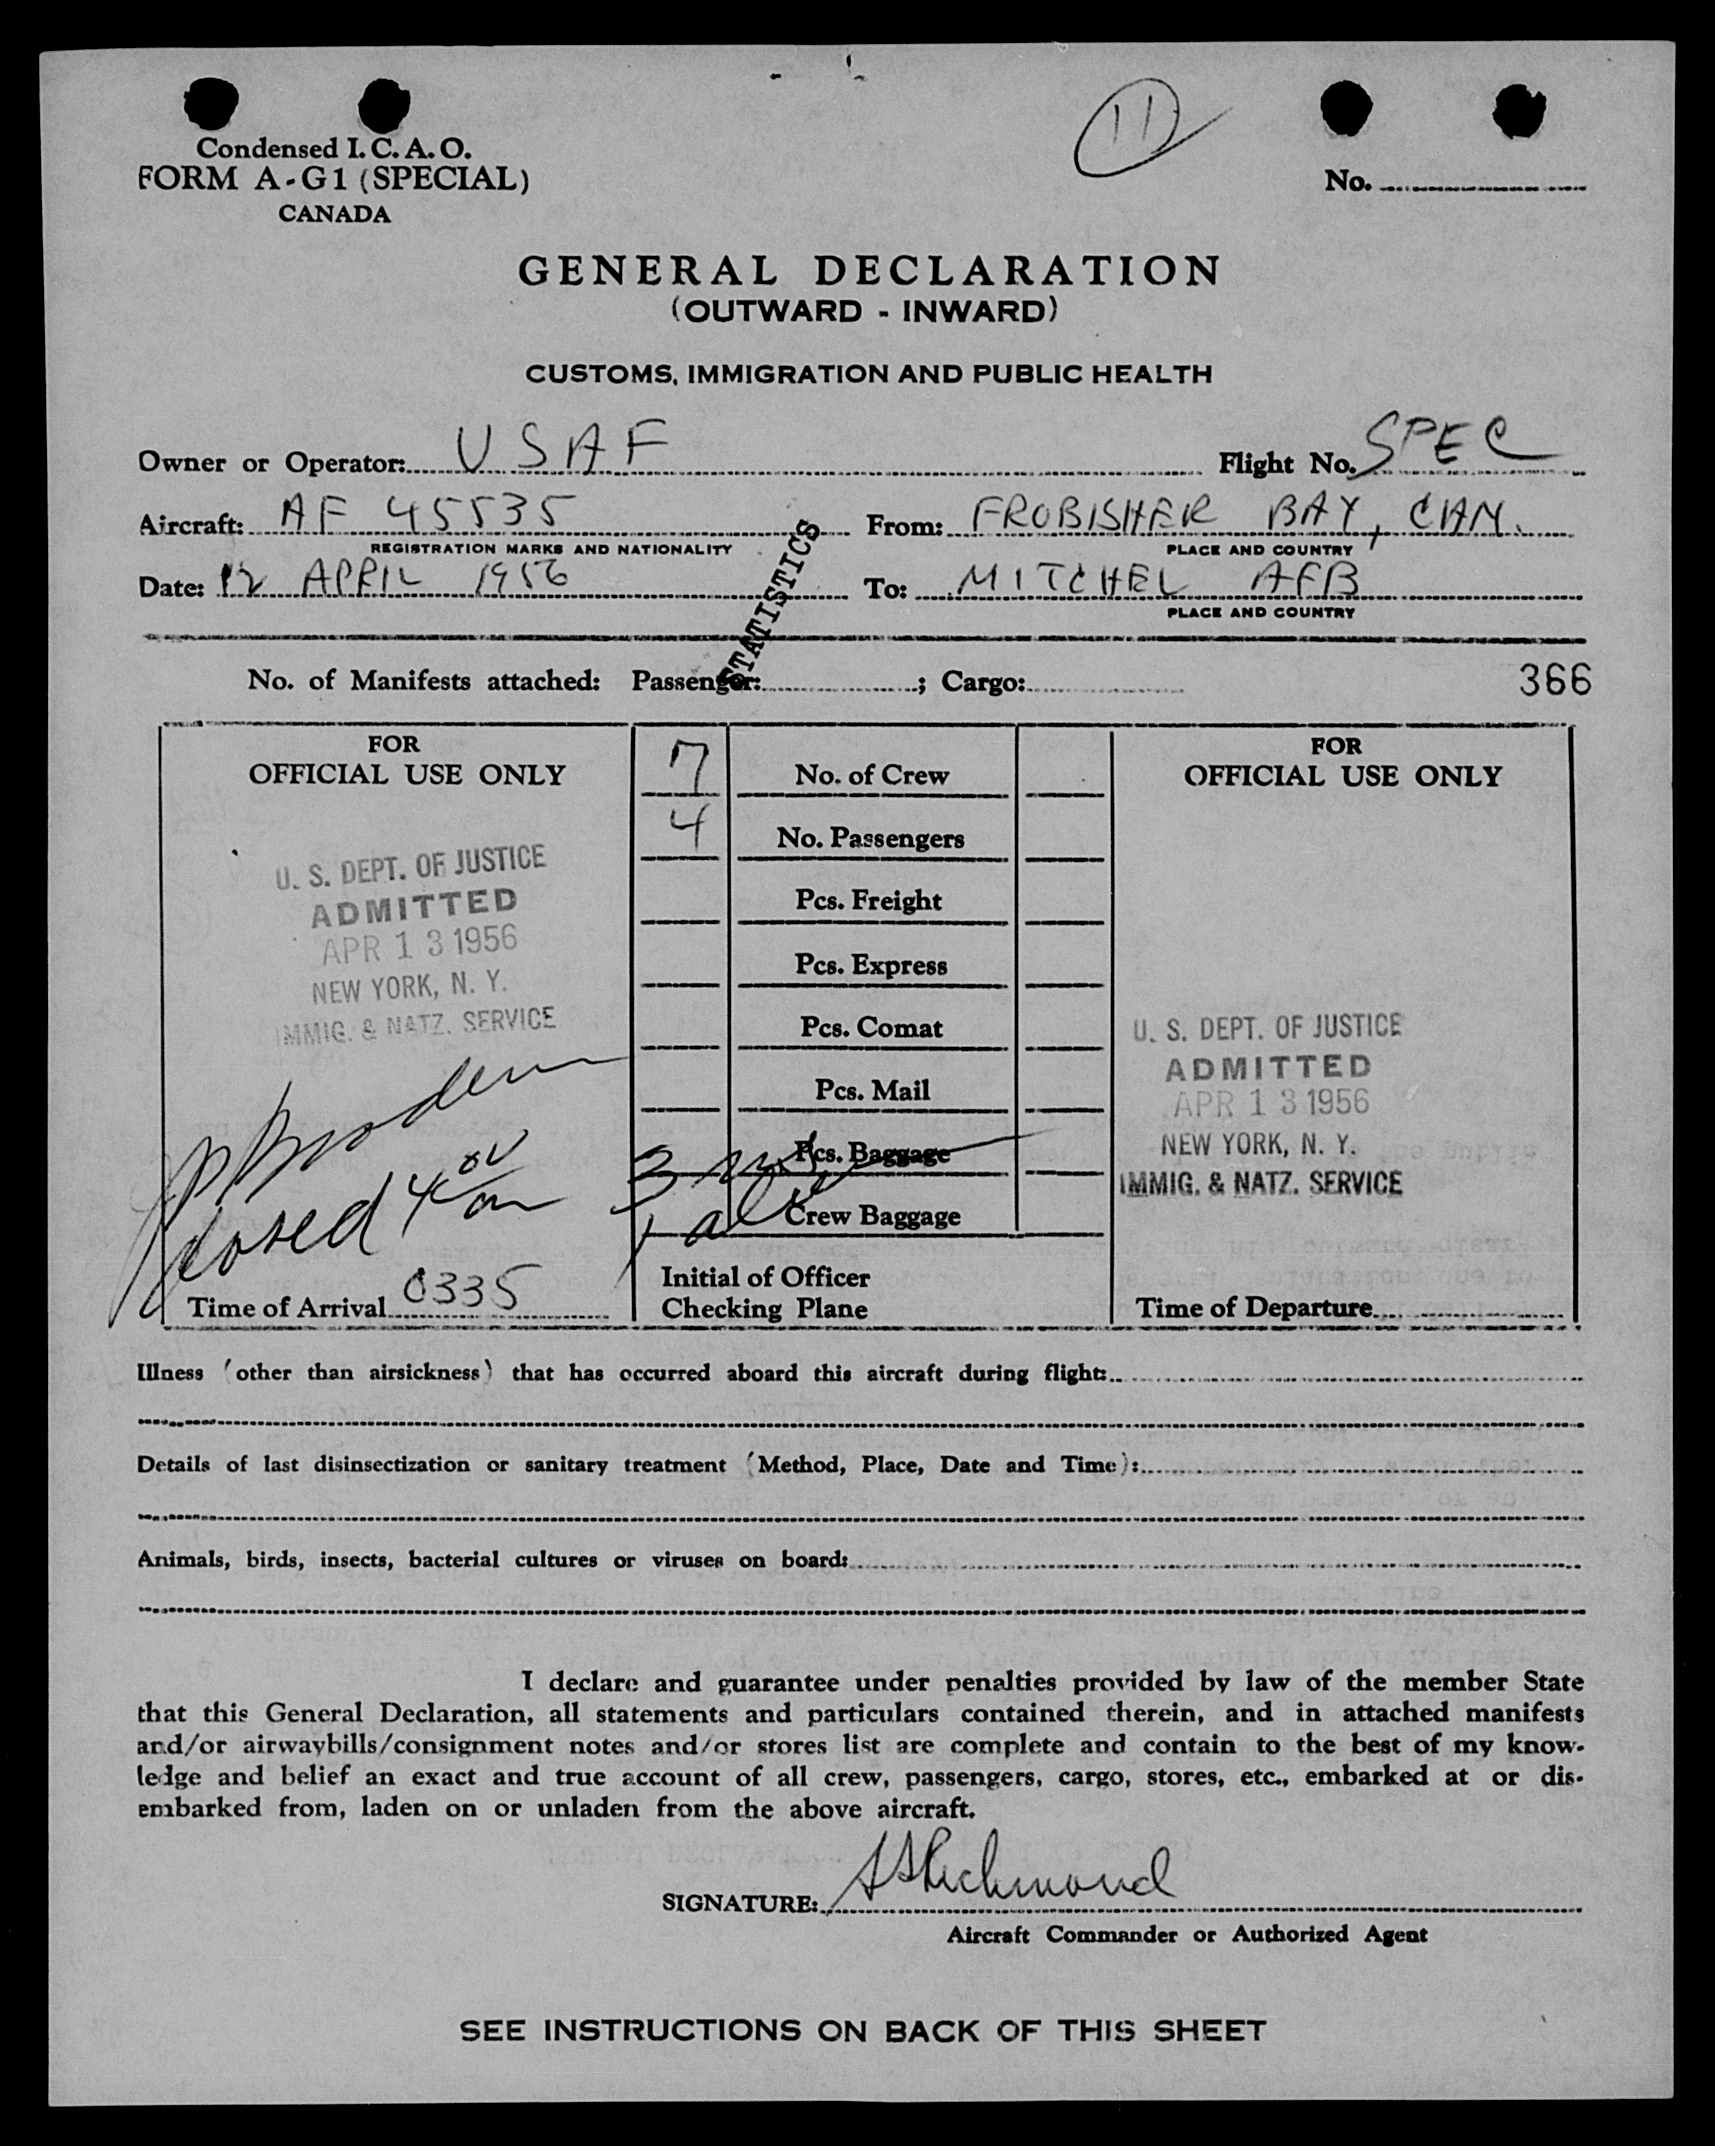 11
Condensed I. C. A. O.
FORM A-G1 (SPECIAL)
CANADA
No.
GENERAL DECLARATION
(OUTWARD - INWARD)
CUSTOMS, IMMIGRATION AND PUBLIC HEALTH
Owner or Operator: USAF Flight No. SPEC
Aircraft: AF 45535 From: FROBISHER BAY, CAN.
REGISTRATION MARKS AND NATIONALITY PLACE AND COUNTRY
Date: 12 APRIL 1956 To: MITCHEL AFB
PLACE AND COUNTRY
STATISTICS
No. of Manifests attached: Passenger: ; Cargo: 366
FOR
OFFICIAL USE ONLY
U. S. DEPT. OF JUSTICE
ADMITTED
APR 13 1956
NEW YORK, N. Y.
IMMIG. & NATZ. SERVICE
closed 4 00 am
Time of Arrival 0335
7 No. of Crew
4 No. Passengers
Pcs. Freight
Pcs. Express
Pcs. Comat
Pcs. Mail
Pcs. Baggage
Crew Baggage
3
1
Initial of Officer
Checking Plane
FOR
OFFICIAL USE ONLY
U. S. DEPT. OF JUSTICE
ADMITTED
APR 13 1956
NEW YORK, N. Y.
IMMIG. & NATZ. SERVICE
Time of Departure
Illness (other than airsickness) that has occurred aboard this aircraft during flight:
Details of last disinsectization or sanitary treatment (Method, Place, Date and Time):
Animals, birds, insects, bacterial cultures or viruses on board:
I declare and guarantee under penalties provided by law of the member State
that this General Declaration, all statements and particulars contained therein, and in attached manifests
and/or airwaybills/consignment notes and/or stores list are complete and contain to the best of my know-
ledge and belief an exact and true account of all crew, passengers, cargo, stores, etc., embarked at or dis-
embarked from, laden on or unladen from the above aircraft.
SIGNATURE: SSRichmond
Aircraft Commander or Authorized Agent
SEE INSTRUCTIONS ON BACK OF THIS SHEET